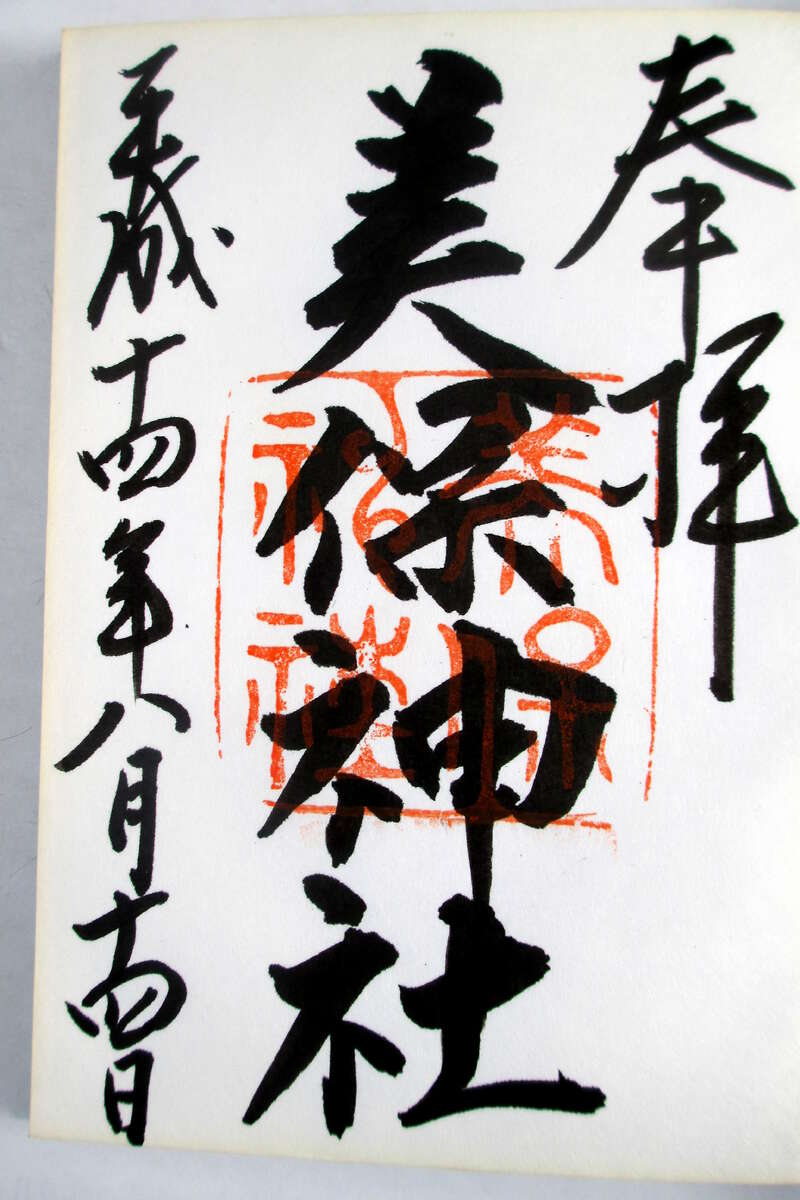 奉拝
美保神社
平成十四年八月十四日